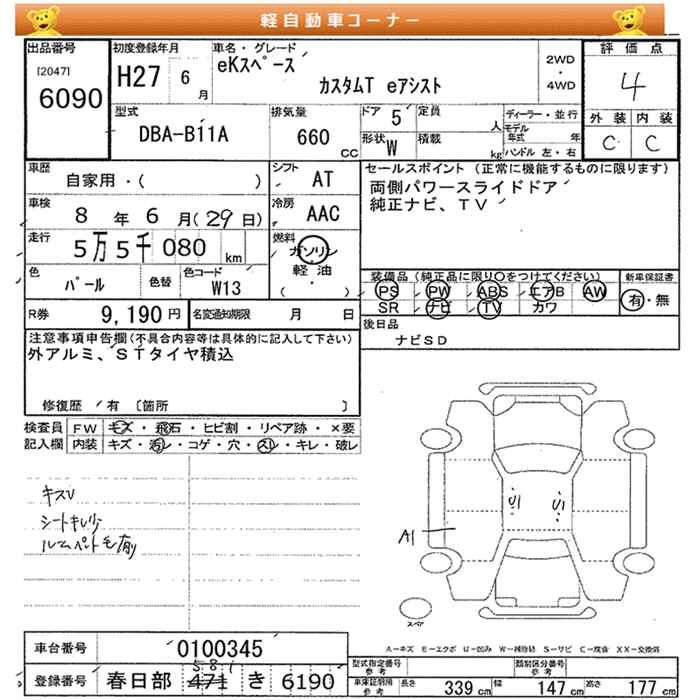 軽自動車コーナー
出品番号 初度登録年月 車名・グレード 評価点
[2047] 6090 H27 6月 eKスペース カスタムT eアシスト 2WD・4WD 4
外装 内装
C C
型式 排気量 ドア 5 定員 人 ディーラー・並行
DBA-B11A 660 CC 形状 W 積載 kg モデル年式 年
ハンドル 左・右
車歴 自家用・( ) シフト AT セールスポイント(正常に機能するものに限ります)
両側パワースライドドア
純正ナビ、TV
車検 8年6月(29日) 冷房 AAC
走行 5万5千080km 燃料 ガソリン
軽・油
( )
色 パール 色替 色コード W13
装備品(純正品に限り〇をつけてください) 新車保証書
PS PW ABS エアB AW 有・無
SR ナビ TV カワ
R券 9,190円 名変通知期限 月 日
後日品
ナビSD
注意事項申告欄(不具合内容等は具体的に記入して下さい)
外アルミ、STタイヤ積込
修復歴/有 〔箇所 〕
検査員記入欄 FW キズ・飛石・ヒビ割・リペア跡・×要
内装 キズ・汚レ・コゲ・穴・スレ・キレ・破レ
キスU
シートキレ少
U1 U1
A1
スペア
車台番号 0100345
A-キズ E-エクボ U-凹み W-補修跡 S-サビ C-腐食 XX-交換済
登録番号 春日部 471 581 き 6190
型式指定番号 参考 類別区分番号 参考
車庫証明用 参考 長さ 339cm 幅 147cm 高さ 177cm